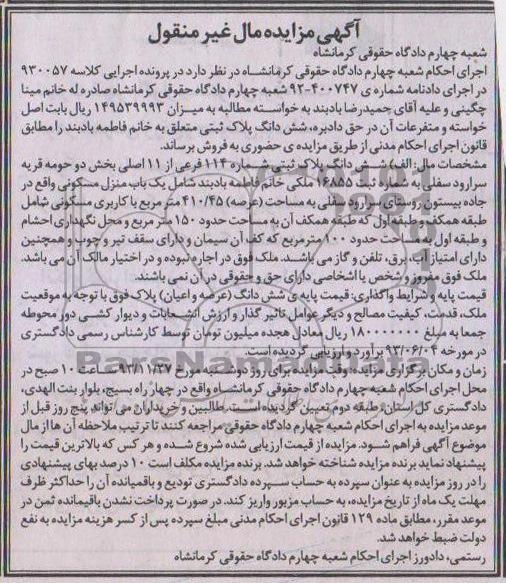 آگهی مزایده مال غیر منقول
شعبه چهارم دادگاه حقوقی کرمانشاه
اجرای احکام شعبه چهارم دادگاه حقوقی کرمانشاه در نظر دارد در پرونده اجرایی کلاسه ۹۳۰۰۵۷
در اجرای دادنامه شماره ی ۴۰۰۷۴۷-۹۲ شعبه چهارم دادگاه حقوقی کرمانشاه صادره له خانم مینا
چگینی و علیه آقای حمیدرضا بادبند به خواسته مطالبه به میزان ۱۴۹۵۳۹۹۹۳ ریال بابت اصل
خواسته و متفرعات آن در حق دادبره، شش دانگ پلاک ثبتی متعلق به خانم فاطمه بادبند را مطابق
قانون اجرای احکام مدنی از طریق مزایده ی حضوری به فروش برساند.
مشخصات مال: الف) شش دانگ پلاک ثبتی شماره ۱۱۴ فرعی از ۱۱ اصلی بخش دو حومه قریه
سرارود سفلی به شماره ثبت ۱۶۸۵۵ ملکی خانم فاطمه بادبند شامل یک باب منزل مسکونی واقع در
جاده بیستون روستای سرارود سفلی به مساحت (عرصه) ۴۱۰/۴۵ متر مربع با کاربری مسکونی شامل
طبقه همکف و طبقه اول که طبقه همکف آن به مساحت حدود ۱۵۰ متر مربع و محل نگهداری احشام
و طبقه اول به مساحت حدود ۱۰۰ مترمربع که کف آن سیمان و دارای سقف تیر و چوب و همچنین
دارای امتیاز آب، برق، تلفن و گاز می باشد. ملک فوق در اجاره نبوده و در اختیار مالک آن می باشد.
ملک فوق مفروز و شخص یا اشخاصی دارای حق و حقوقی در آن نمی باشند.
قیمت پایه و شرایط واگذاری: قیمت پایه ی شش دانگ (عرصه و اعیان) پلاک فوق با توجه به موقعیت
ملک، قدمت، کیفیت مصالح و دیگر عوامل تاثیر گذار و ارزش انشعابات و دیوار کشی دور محوطه
جمعا به مبلغ ۱۸۰۰۰۰۰۰۰ ریال معادل هجده میلیون تومان توسط کارشناس رسمی دادگستری
در مورخه ۹۳/۰۶/۰۴ برآورد و ارزیابی گردیده است.
زمان و مکان برگزاری مزایده: وقت مزایده برای روز دوشنبه مورخ ۹۳/۱۱/۲۷ ساعت ۱۰ صبح در
محل اجرای احکام شعبه چهارم دادگاه حقوقی کرمانشاه واقع در چهار راه بسیج، بلوار بنت الهدی،
دادگستری کل استان، طبقه دوم تعیین گردیده است. طالبین و خریداران می تواند پنج روز قبل از
موعد مزایده به اجرای احکام شعبه چهارم دادگاه حقوقی مراجعه کنند تا ترتیب ملاحظه آن ها از مال
موضوع آگهی فراهم شود. مزایده از قیمت ارزیابی شده شروع شده و هر کس که بالاترین قیمت را
پیشنهاد نماید برنده مزایده شناخته خواهد شد. برنده مزایده مکلف است ۱۰ درصد بهای پیشنهادی
را در روز مزایده به عنوان سپرده به حساب سپرده دادگستری تودیع و باقمیانده آن را حداکثر ظرف
مهلت یک ماه از تاریخ مزایده، به حساب مزبور واریز کند. در صورت پرداخت نشدن باقیمانده ثمن در
موعد مقرر، مطابق ماده ۱۲۹ قانون اجرای احکام مدنی مبلغ سپرده پس از کسر هزینه مزایده به نفع
دولت ضبط خواهد شد.
رستمی، دادورز اجرای احکام شعبه چهارم دادگاه حقوقی کرمانشاه